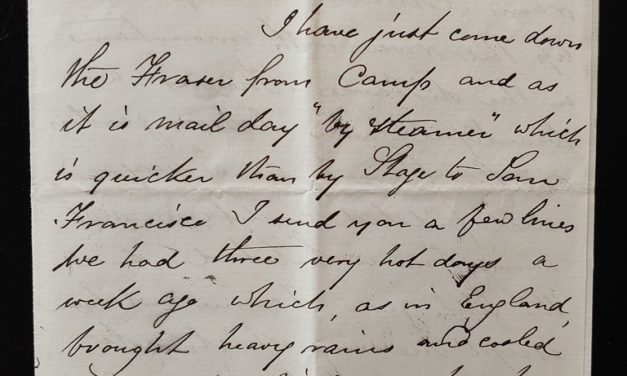 I have just come down
the Fraser from Camp and as
it is mail day "by steamer" which
is quicker than by Stage to San
Francisco I send you a few lines
We had three very hot days a
week ago which, as in England,
brought heavy rains and cooled